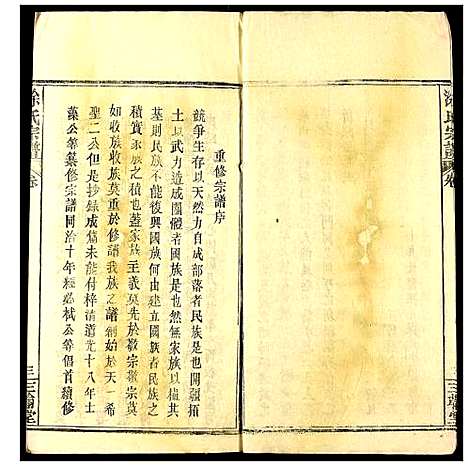 重修宗譜序
競爭生存以天然力自成部落者民族是也開疆拓
土以武力造成團體者國族是也無家族以植其
基則民族不能復興國族何由建立國族者民族之
積實家族之積也蓋家族主義莫先於敬宗敬宗莫
如收族收族莫重於修譜我族之譜創始於天一希
聖二公但是抄錄成篇未能付梓清道光十八年士
藻公等纂修宗譜同治十年經必栻公等倡首續修
涂氏宗譜 卷
三 三韜堂
涂氏宗譜 卷
三韜堂